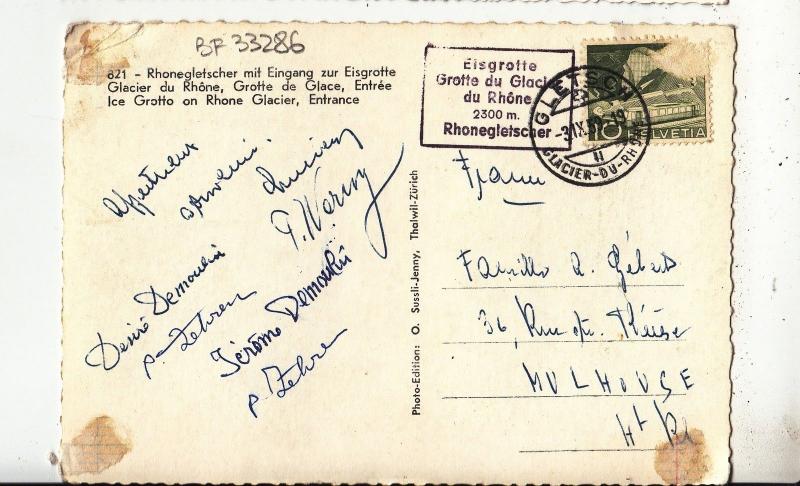 BF 33286
821 - Rhonegletscher mit Eingang zur Eisgrotte
Glacier du Rhône, Grotte de Glace, Entrée
Ice Grotto on Rhone Glacier, Entrance
Eisgrotte
Grotte du Glacier
du Rhône
2300 m.
Rhonegletscher
GLETSCH
-3.IX.59-19
GLACIER-DU-RHÔNE
10 HELVETIA
affectueux
souvenir
Désiré Demoulin
Jérôme Demoulin
Photo-Edition: O. Sussli-Jenny, Thalwil-Zürich
France
Famille A. Gébert
36, Rue
MULHOUSE
Ht Rh